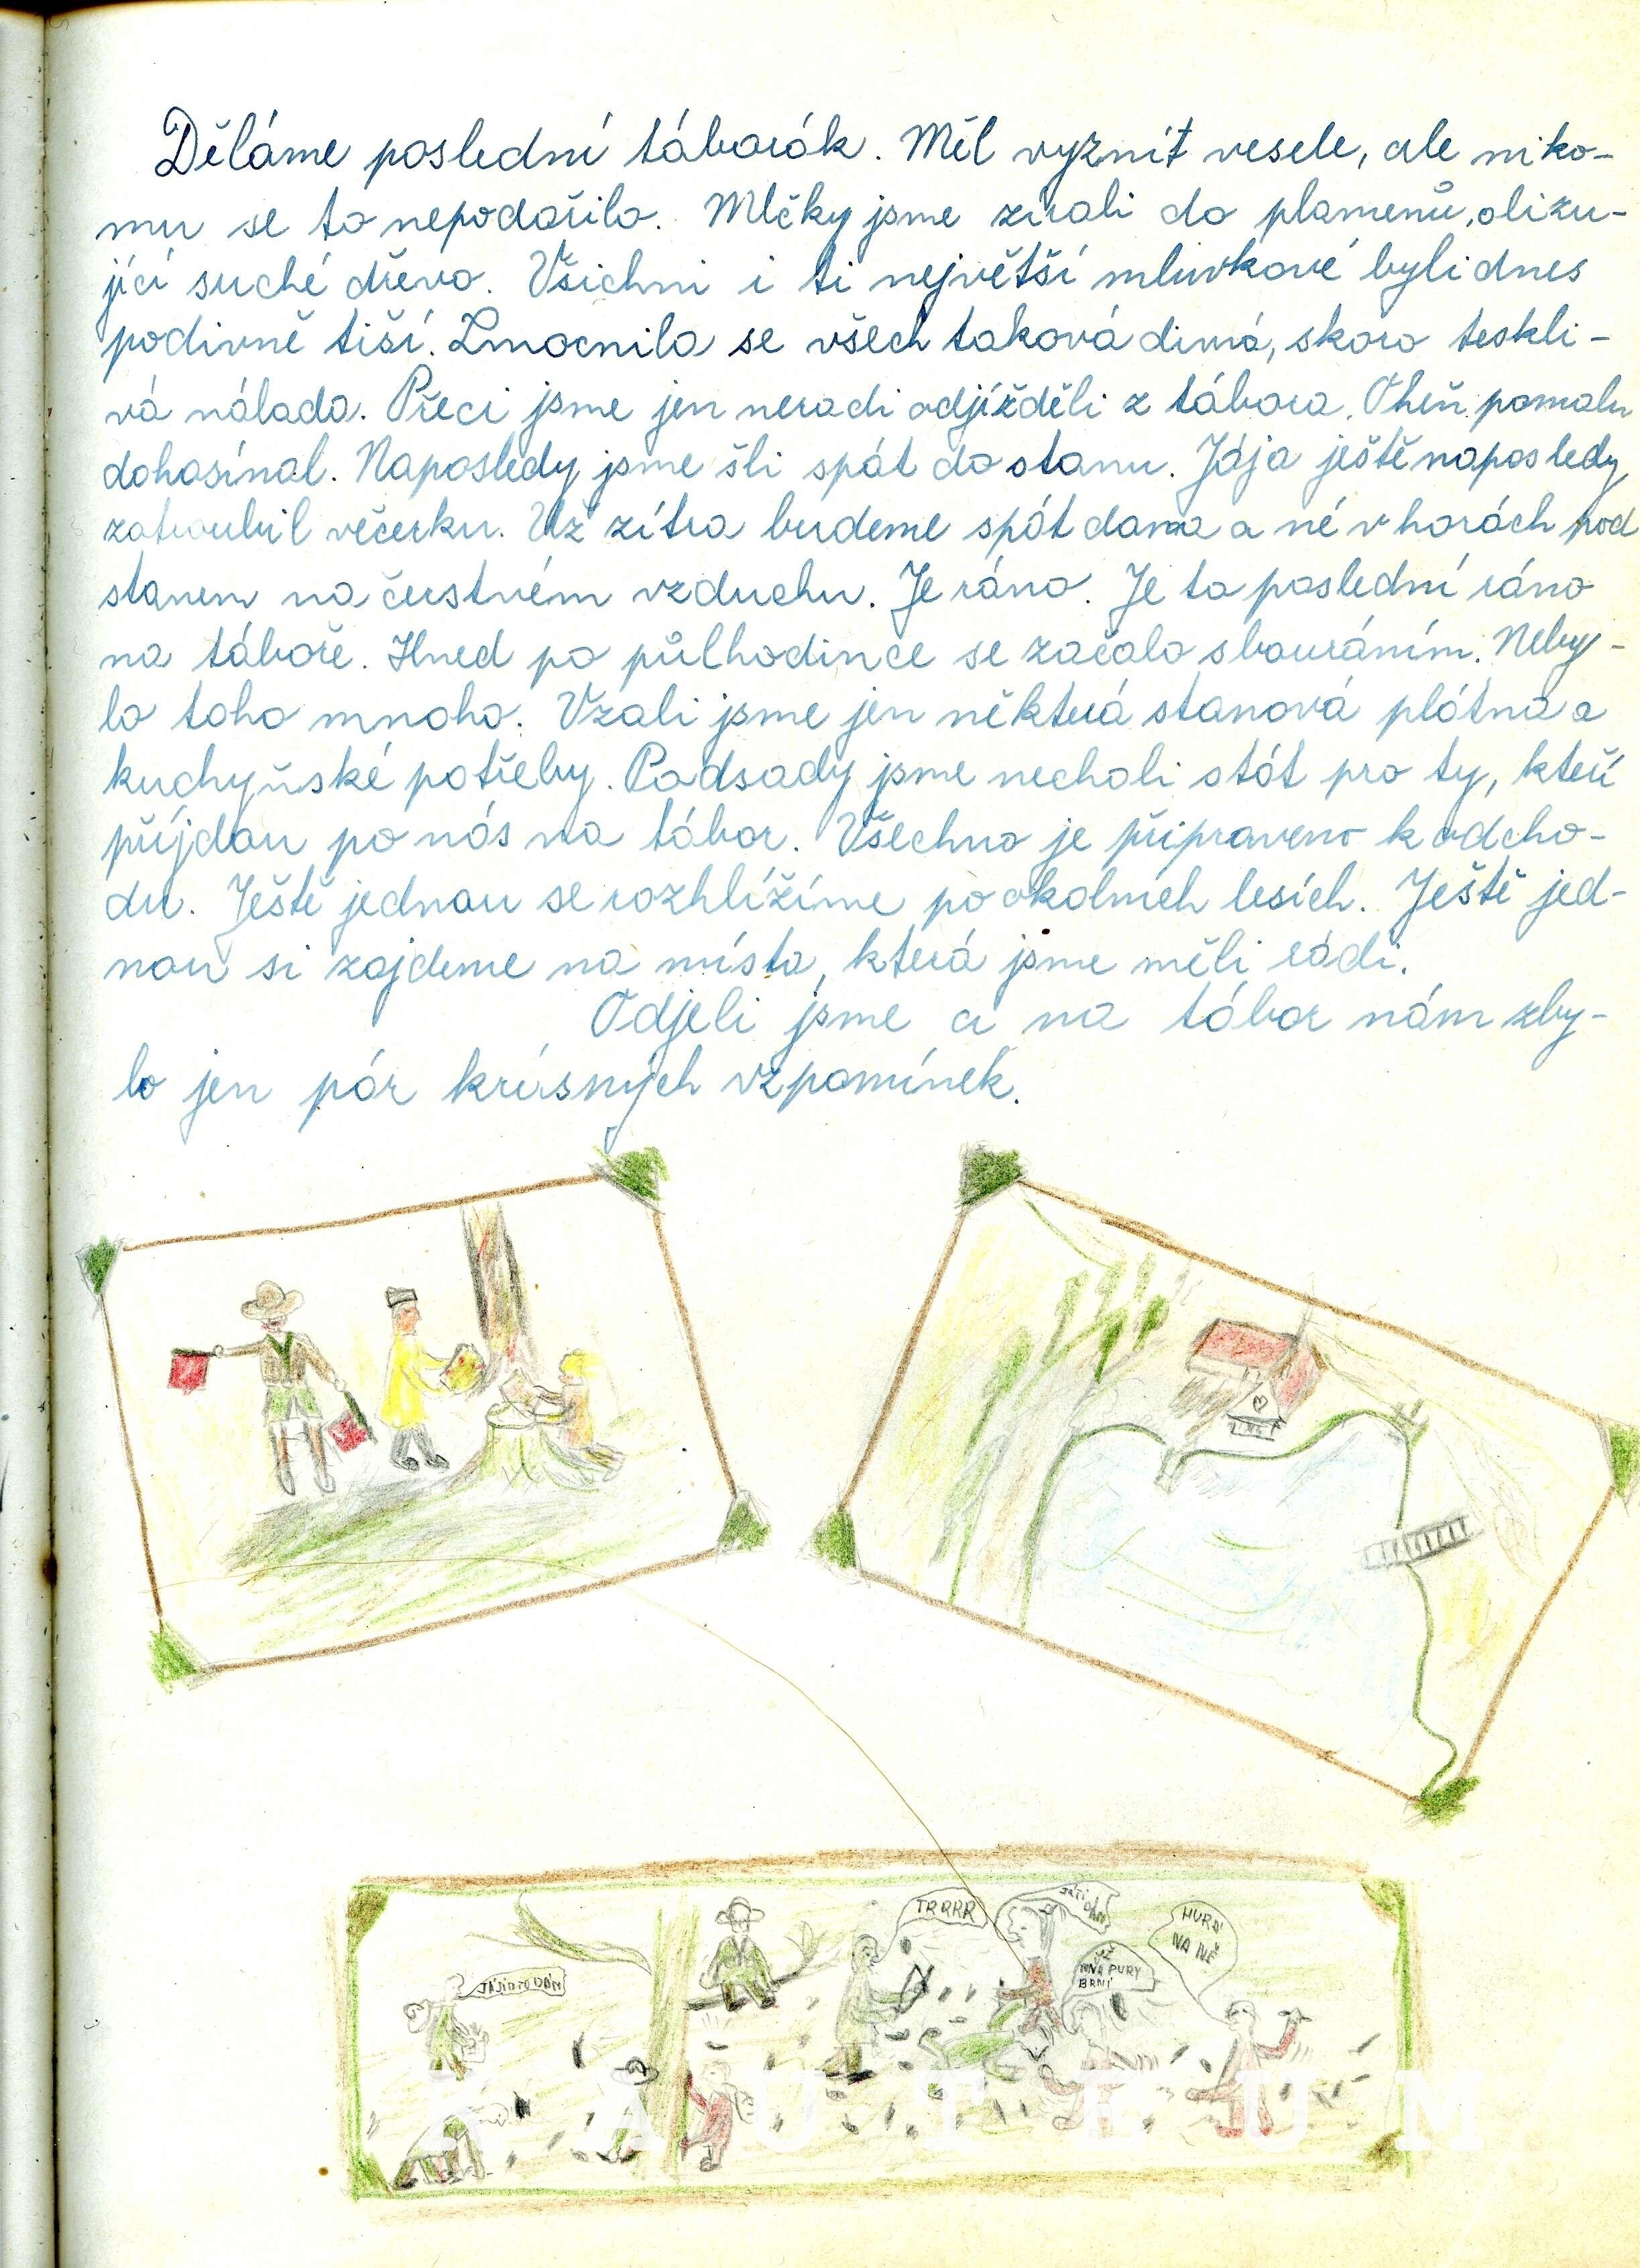 Děláme poslední táborák. Měl vyznít vesele, ale niko-
mu se to nepodařilo. Mlčky jsme zírali do plamenů, olizu-
jící suché dřevo. Všichni i ti největší mluvkové byli dnes
podivně tiší. Zmocnila se všech taková divná, skoro teskli-
vá nálada. Přeci jsme jen neradi odjížděli z tábora. Oheň pomalu
dohasínal. Naposledy jsme šli spát do stanu. Jája ještě naposledy
zatroubil večerku. Už zítra budeme spát doma a né v horách pod
stanem na čerstvém vzduchu. Je ráno. Je to poslední ráno
na táboře. Hned po půlhodince se začalo s bouráním. Neby-
lo toho mnoho. Vzali jsme jen některá stanová plátna a
kuchyňské potřeby. Podsady jsme nechali stát pro ty, kteří
příjdou po nás na tábor. Všechno je připraveno k odcho-
du. Ještě jednou se rozhlížíme po okolních lesích. Ještě jed-
nou si zajdeme na místa, která jsme měli rádi.
Odjeli jsme a na tábor nám zby-
lo jen pár krásných vzpomínek.
TRRRR
HURÁ
NA NĚ
BRNÍ